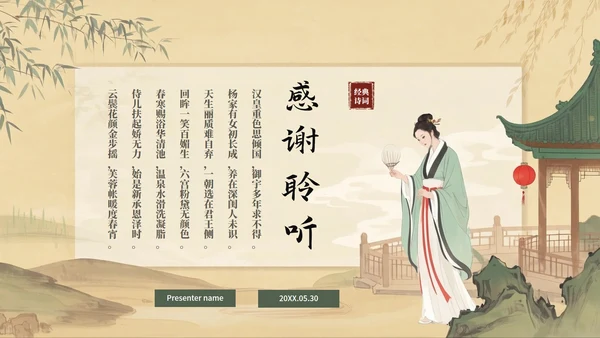 经典
诗词
感谢聆听
汉皇重色思倾国，御宇多年求不得。
杨家有女初长成，养在深闺人未识。
天生丽质难自弃，一朝选在君王侧。
回眸一笑百媚生，六宫粉黛无颜色。
春寒赐浴华清池，温泉水滑洗凝脂。
侍儿扶起娇无力，始是新承恩泽时。
云鬓花颜金步摇，芙蓉帐暖度春宵。
Presenter name
20XX.05.30